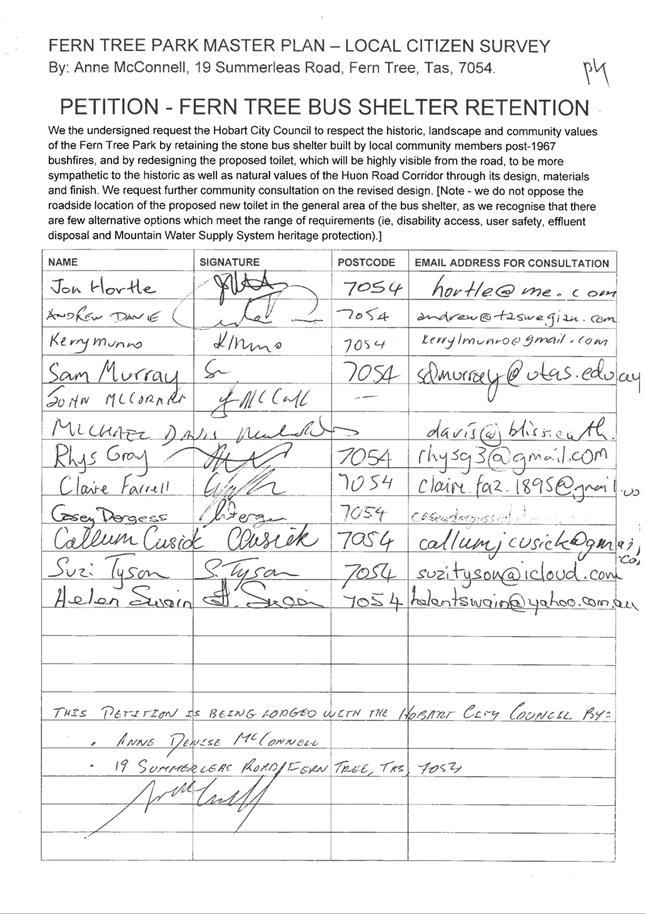 FERN TREE PARK MASTER PLAN – LOCAL CITIZEN SURVEY
By: Anne McConnell, 19 Summerleas Road, Fern Tree, Tas, 7054.
PETITION - FERN TREE BUS SHELTER RETENTION
We the undersigned request the Hobart City Council to respect the historic, landscape and community values
of the Fern Tree Park by retaining the stone bus shelter built by local community members post-1967
bushfires, and by redesigning the proposed toilet, which will be highly visible from the road, to be more
sympathetic to the historic as well as natural values of the Huon Road Corridor through its design, materials
and finish. We request further community consultation on the revised design. [Note - we do not oppose the
roadside location of the proposed new toilet in the general area of the bus shelter, as we recognise that there
are few alternative options which meet the range of requirements (ie, disability access, user safety, effluent
disposal and Mountain Water Supply System heritage protection).]
NAME SIGNATURE POSTCODE EMAIL ADDRESS FOR CONSULTATION
Jon Hortle 7054 hortle@me.com
ANDREW DAVIE 7054 andrew@taswegian.com
Kerry munro K/Munro 7054 kerrylmunro@gmail.com
Sam Murray 7054 sdmurray@utas.edu.au
JOHN —
MICHAEL DAVIS davis@bliss.earth.
Rhys Gray 7054 rhysg3@gmail.com
Claire Farrell 7054 claire.faz.1895@gmail.co
Casey 7054
Callum Cusick CCusick 7054 callumjcusick@gmai
.co,
Suzi Tyson S. Tyson 7054 suzityson@icloud.com
Helen Swain H. Swain 7054 helentswain@yahoo.com.au
THIS PETITION IS BEING LODGED WITH THE HOBART CITY COUNCIL BY:-
• ANNE DENISE McCONNELL
• 19 SUMMERLEAS ROAD, FERN TREE, TAS, 7054